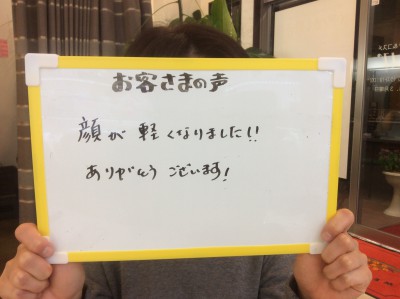 お客さまの声
顔が軽くなりました!!
ありがとうございます!